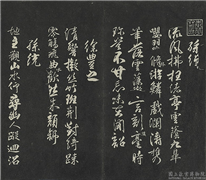 孫綽
流風拂枉渚亭雲蔭九皋
鶯語吟脩竹游鱗戲瀾濤攜
筆落雲藻微言剖纖毫時
珍豈不甘忘味在聞韶
徐豐之
清響擬絲竹班荊對綺疏
零觴飛曲津歡然朱顏舒
孫統
地主觀山水仰尋幽人蹤迴沼